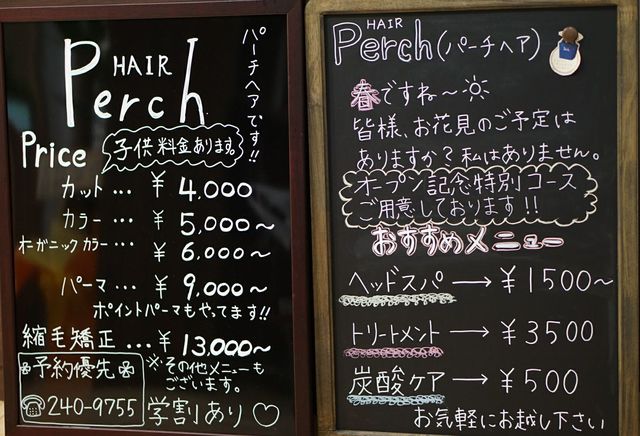 HAIR
Perch
パーチヘアです!!
Price
子供料金あります。
カット… ¥ 4,000
カラー… ¥ 5,000～
オーガニックカラー… ¥ 6,000～
パーマ… ¥ 9,000～
ポイントパーマもやってます!!
縮毛矯正… ¥ 13,000～
予約優先
240-9755
※その他メニューも
ございます。
学割あり♡
HAIR
Perch(パーチヘア)
春ですね～☀
皆様、お花見のご予定は
ありますか?私はありません。
オープン記念特別コース
ご用意しております!!
おすすめメニュー
ヘッドスパ → ¥1500～
トリートメント → ¥3500
炭酸ケア → ¥500
お気軽にお越し下さい